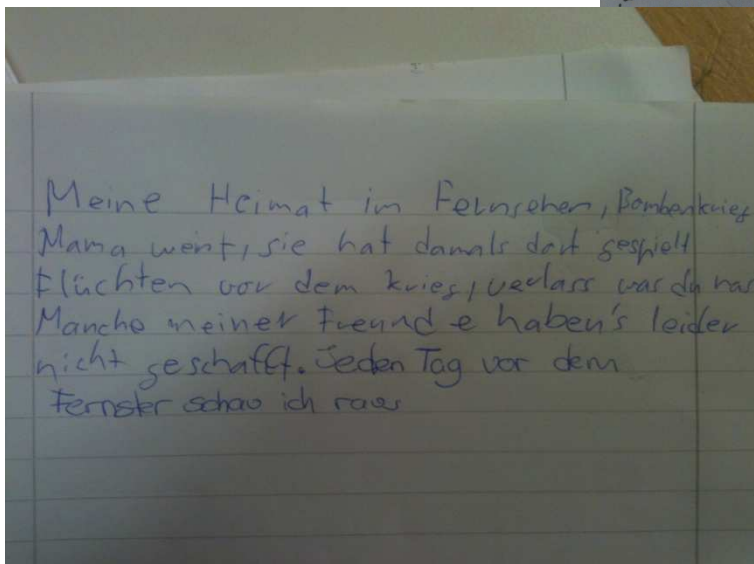 Meine Heimat im Fernsehen, Bombenkrieg
Mama weint, sie hat damals dort gespielt
Flüchten vor dem krieg, verlass was du has
Manche meiner Freund e haben's leider
nicht geschafft. Jeden Tag vor dem
Fernster schau ich raus